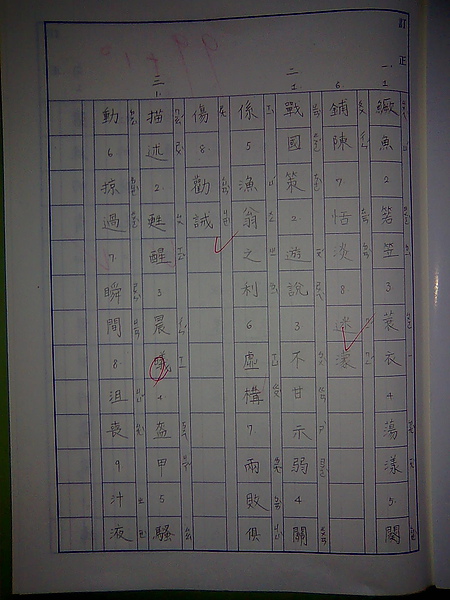 訂正
99+1
一、1 鱖魚 2 箬笠 3 蓑衣 4 蕩漾 5 闋
6 鋪陳 7 恬淡 8
二、1 戰國策 2 遊說 3 不甘示弱 4 關
係 5 漁翁之利 6 虛構 7 兩敗俱
傷 8 勸誡
三、1 描述 2 甦醒 3 晨曦 4 盔甲 5 騷
動 6 掠過 7 瞬間 8 沮喪 9 汁液